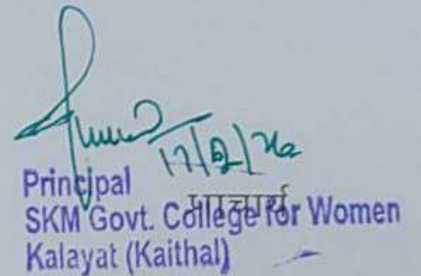 17/2/26
Principal
प्राचार्य
SKM Govt. College for Women
Kalayat (Kaithal)